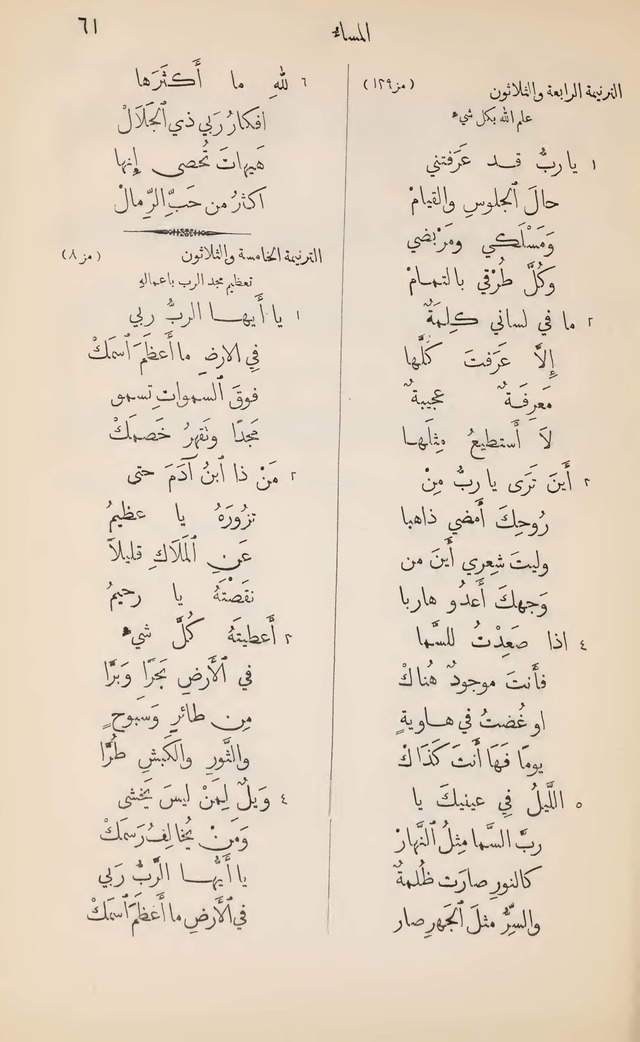 المساء
٦١
الترنيمة الرابعة والثلاثون (مز ١٣٩)
علم الله بكل شيء
١ يا ربُّ قد عَرَفتني
حالَ الجلوسِ والقيامْ
وَمَسْلَكي ومَرْبَضي
وكُلَّ طُرْقي بالتمامْ
٢ ما في لساني كَلِمَةٌ
إِلاَّ عَرَفتَ كُلَّها
مَعرِفَةٌ عجيبةٌ
لاَ أَستطيعُ مِثلَها
٣ أَينَ تَرَى يا ربُّ مِنْ
رُوحِكَ أَمضي ذاهبا
وليتَ شِعري أَينَ من
وَجهِكَ أَعدُو هاربا
٤ اذا صَعِدْتُ للسَّما
فأَنتَ موجودٌ هُناكْ
او غُصْتُ في هاويةٍ
يومًا فَهَا أَنتَ كَذَاكْ
٥ اللَّيلُ في عينيكَ يا
ربَّ السَّما مِثلُ النَّهارْ
كالنورِ صارَت ظُلمةٌ
والسِّرُّ مثلَ الجَهرِ صار
٦ للهِ ما أَكثَرَها
افكارُ رَبي ذي الجَلَالْ
هَيهاتَ تُحصى إِنها
اكثرُ من حَبِّ الرِّمالْ
الترنيمة الخامسة والثلاثون (مز ٨)
تعظيم مجد الرب باعماله
١ يا أَيها الربُّ ربي
في الارضِ ما أَعظَمَ اسمَكْ
فوقَ السمواتِ تسمو
مَجدًا وتَقهرُ خَصمَكْ
٢ مَنْ ذا ابنُ آدَمَ حتى
تزُورَهُ يا عظيمُ
عَنِ المَلَاكِ قليلاً
نقَصْتَهُ يا رحيمُ
٣ أَعطيتَهُ كُلَّ شيءٍ
في الأَرضِ بَحرًا وَبَرًّا
مِن طائرٍ وَسبوحٍ
والثَّورِ والكَبشِ طُرًّا
٤ وَيلٌ لِمَنْ ليسَ يَخشى
وَمَنْ يُخالِفُ رَسمَكْ
يا أَيُّها الرَّبُّ رَبي
في الأَرضِ ما أَعظَمَ اسمَكْ